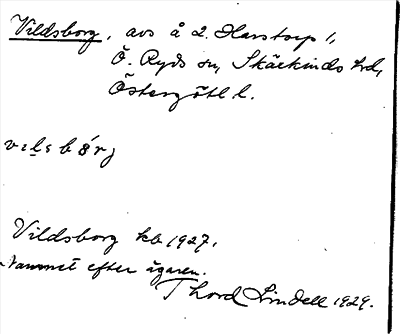 Vildsborg, avs å 2. Harstorp 1,
Ö. Ryds sn, Skärkinds hd,
Östergötl. l.
Vildsborg kb 1927.
Namnet efter ägaren.
Thord Lindell 1929.